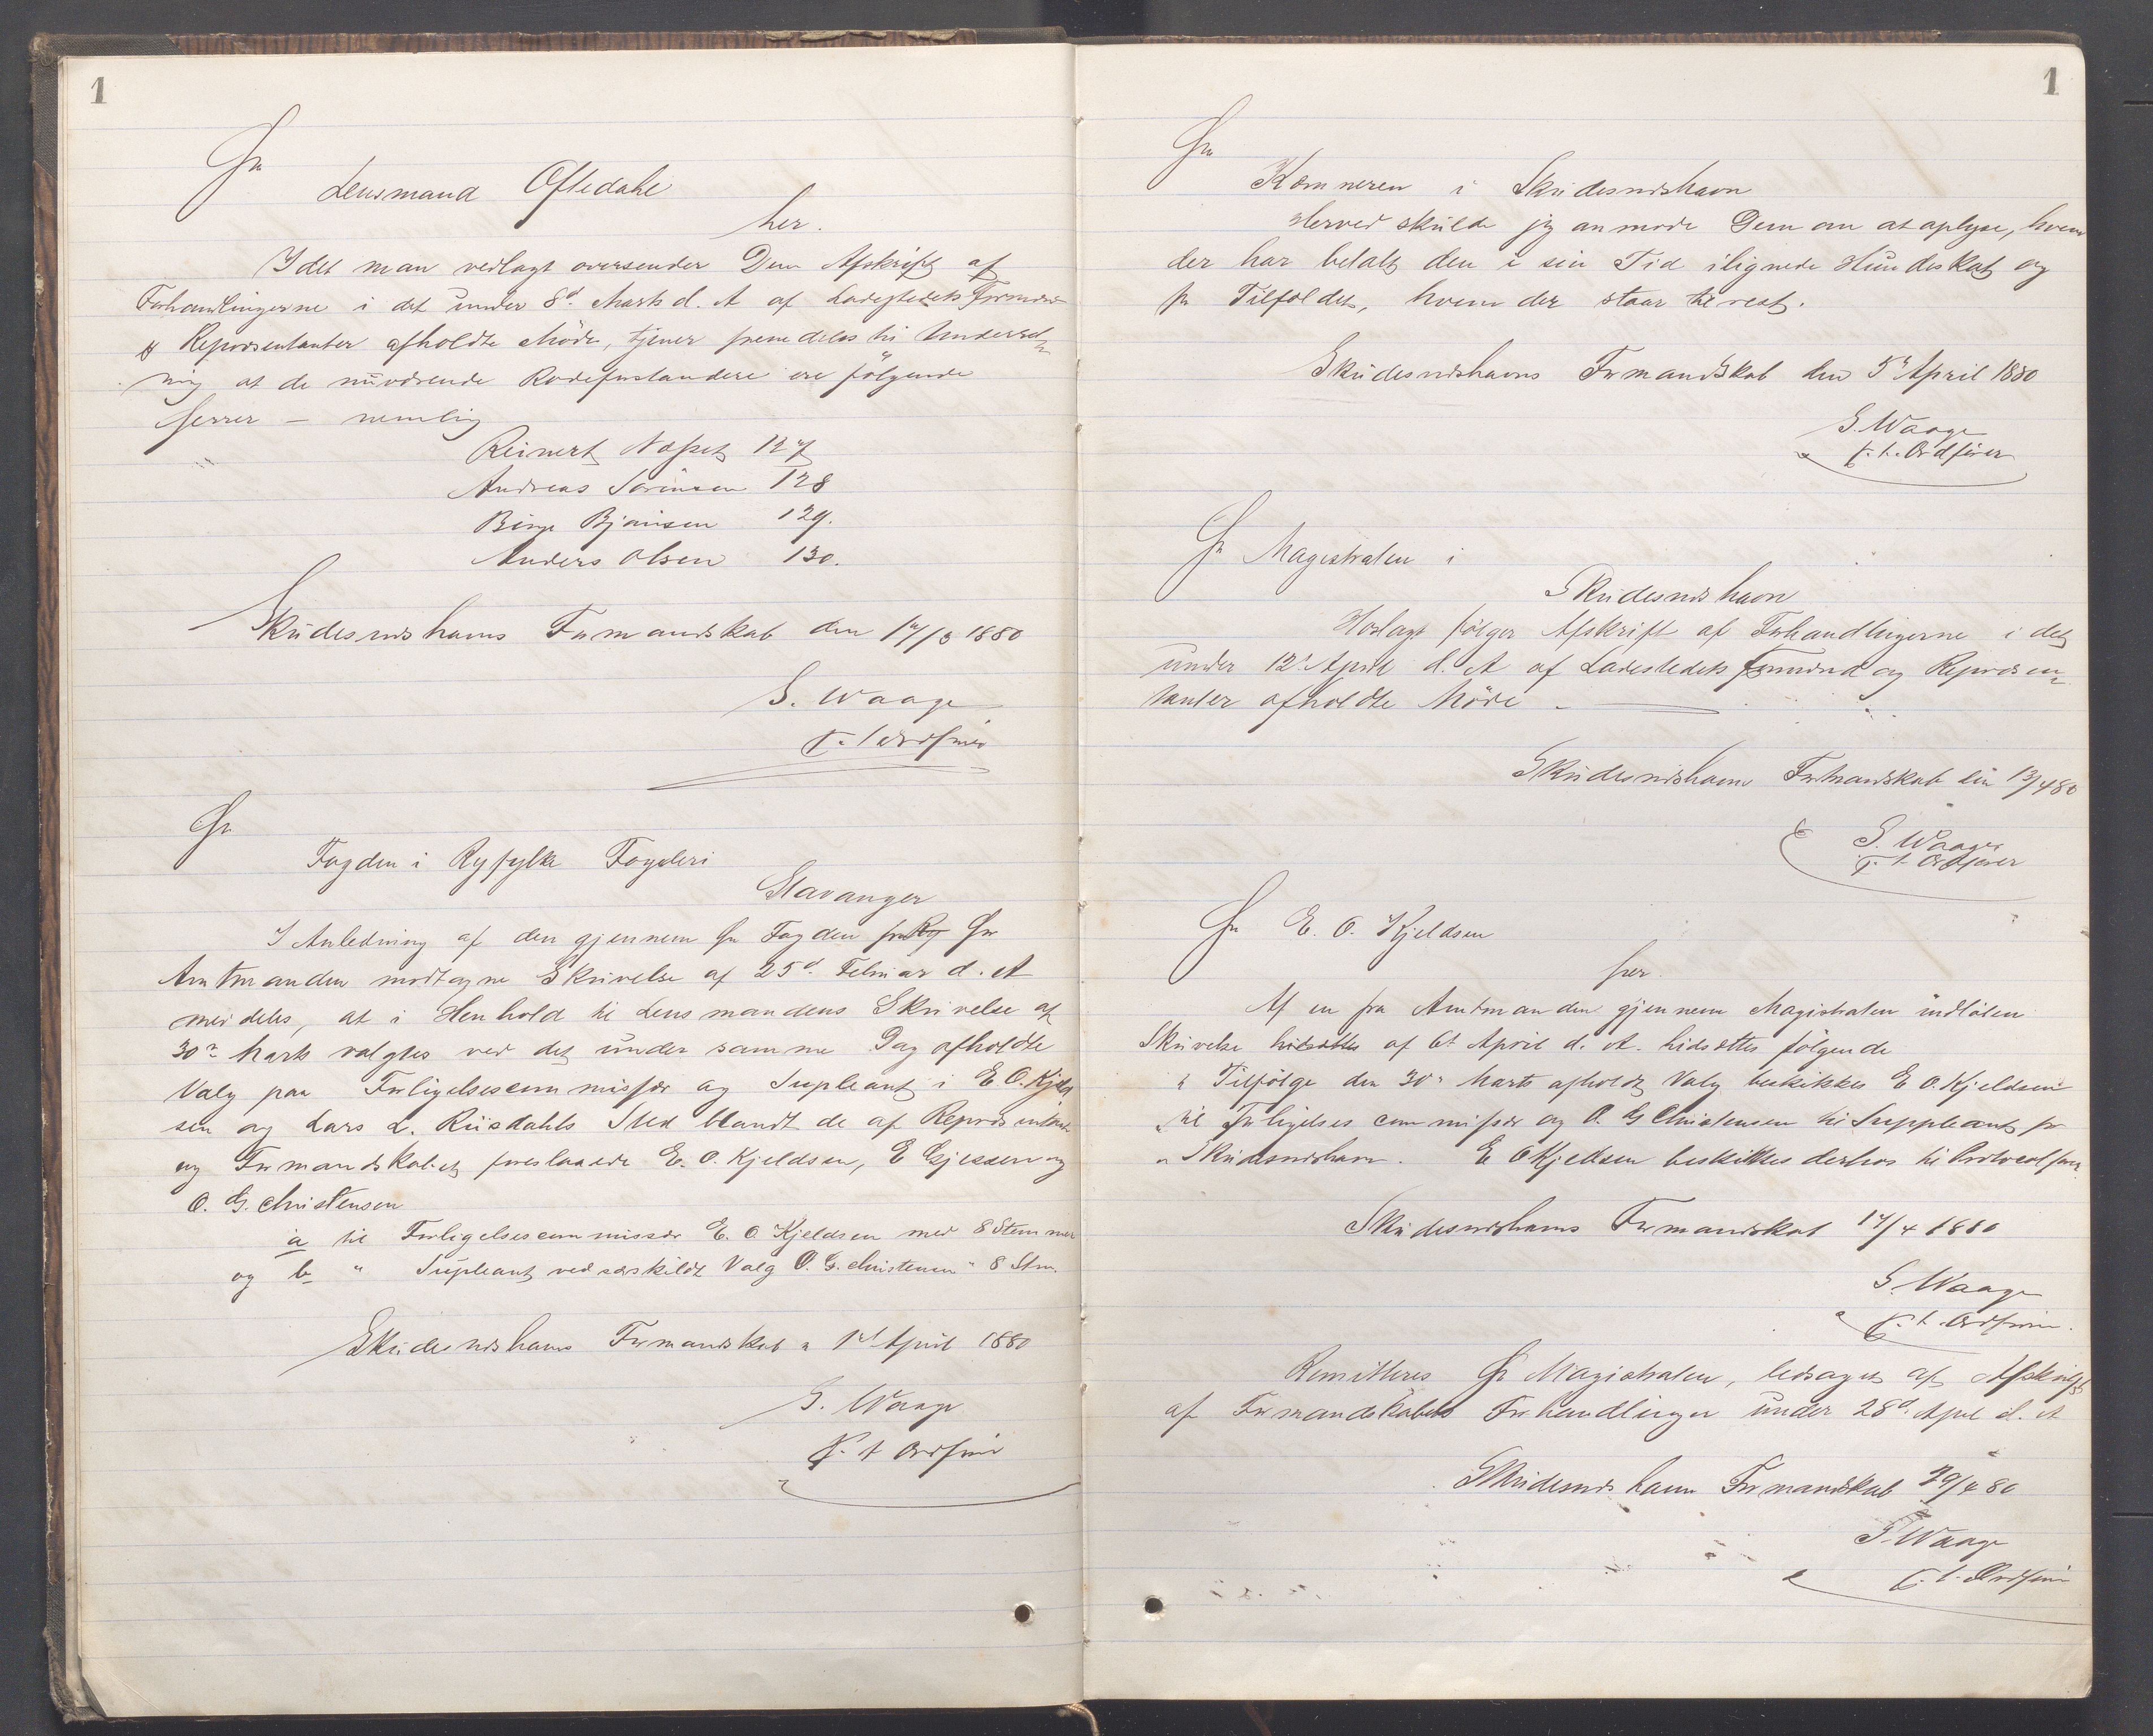 1
Hr
Lensmand Oftedahl
her.
Idet man vedlagt oversender Dem Afskrift af
Forhandlingerne i det under 8d Marts d. A af Ladestedets Formænd
& Repræsentanter afholdte Möde, tjener fremdeles til Underret-
ning at de nuværende Rodeforstandere ere fölgende
Herrer - nemlig
Reinert Næsset 127
Andreas Sörensen 128
Bjansen 129.
Anders Olsen 130.
Skudesneshavns Formandskab den 17/3 1880
S. Waage
p. t. Ordförer
Hr
Fogden i Ryfylke Fogderi
Stavanger
I Anledning af den gjennem Hr Fogden fra Hr
Amtmanden modtagne Skrivelse af 25d Februar d. A
meddeles, at i Henhold til Lensmandens Skrivelse af
30te Marts valgtes ved det under samme Dag afholdte
Valg paa Forligelsescommissær og Supleant i E O. Kjeld
sen og Lars L. Riisdahls Sted blandt de af Repræsentant
og Formandskabet foreslaaede E. O. Kjeldsen, E Gjessen og
O. G. Christensen
a til Forligelsescommissær E. O Kjeldsen med 8 Stemmer
og b " Supleant ved særskildt Valg O. G. Christensen " 8 Stm.
Skudesneshavns Formandskab " 1st April 1880
S. Waage
p. t Ordförer
1
Hr
Kæmneren i Skudesneshavn
Herved skulde jeg anmode Dem om at oplyse, hvem
der har betalt den i sin Tid ilignede Hundeskat og
for Tilfældet, hvem der staar til rest.
Skudesneshavns Formandskab den 5te April 1880
S. Waage
p. t. Ordförer
Hr Magistraten i
Skudesneshavn
Hoslagt fölger Afskrift af Forhandlingerne i det
under 12te April d. A af Ladestedets Formænd og Repræsen-
tanter afholdte Möde -
Skudesneshavns Formandskab den 13/4 80
S. Waage
p. t Ordförer
Hr E. O. Kjeldsen
her.
Af en fra Amtmanden gjennem Magistraten indlöben
Skrivelse hidsættes af 6t April d. A. hidsættes fölgende
" Tilfölge den 30te Marts afholdt Valg beskikkes E O. Kjeldsen
" til Forligelses commissær og O. G Christensen til Suppleant for
" Skudesneshavn. E O Kjeldsen beskikkes derhos til Protocolförer
Skudesneshavns Formandskab 14/4 1880
S. Waage
p. t. Ordförer.
Remitteres Hr Magistraten, ledsaget af Afskrift
af Formandskabets Forhandlinger under 28d April d. A
Skudesneshavns Formandskab 29/4 80
S. Waage
p. t. Ordförer